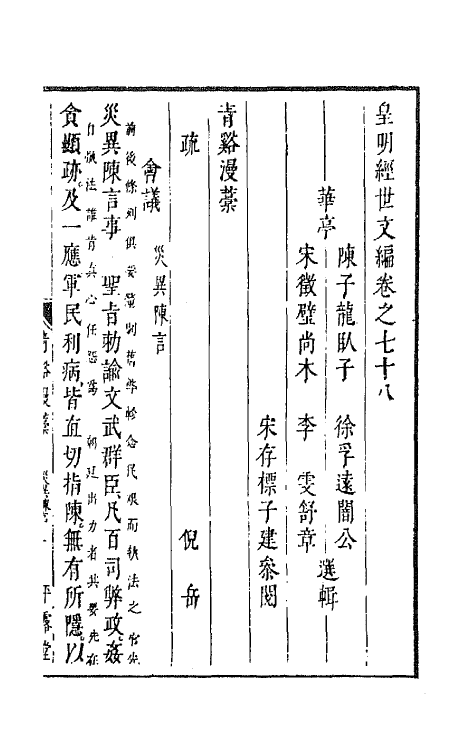 皇明經世文編卷之七十八
華亭
陳子龍臥子
徐孚遠闇公
宋徵璧尚木
李雯舒章
選輯
宋存標子建參閱
青谿漫藁
疏
倪岳
會議
災異陳言
前後條列俱妥
民艱而執法之
災異陳言事 聖旨勅諭文武群臣凡百司弊政姦
自執法誰肯真心任怨爲 朝廷出力者其要先在
貪顯跡及一應軍民利病皆直切指陳無有所隱以
青谿漫藁
平露堂